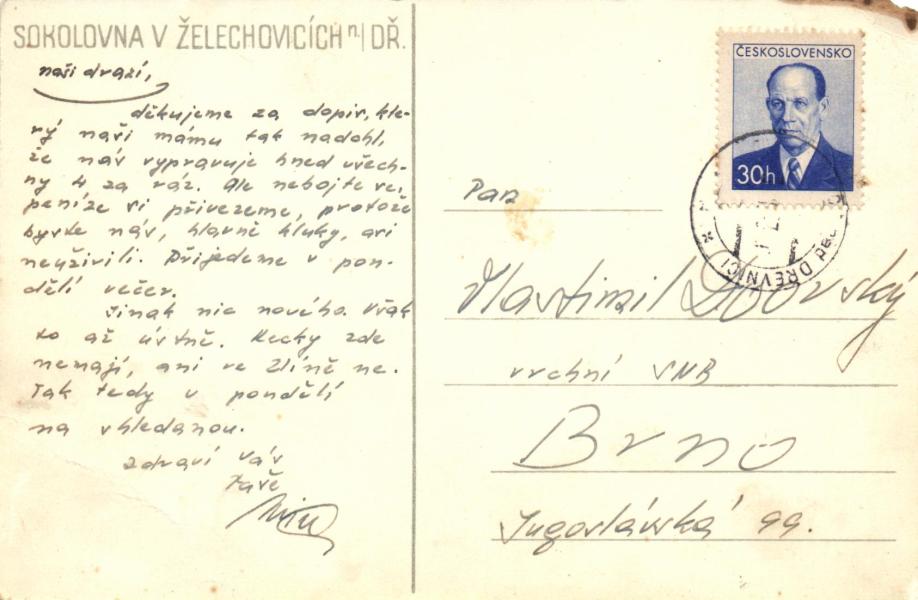 SOKOLOVNA V ŽELECHOVICÍCH n/DŘ.
naši drazí,
děkujeme za dopis, kte-
rý naši mámu tak nadchl,
že nás vypravuje hned všech-
ny 4 za ráz. Ale nebojte se,
peníze si přivezeme, protože
byste nás, hlavně kluky, asi
neuživili. Přijedeme v pon-
dělí večer.
Jinak nic nového. Však
to až ústně. Kecky zde
nemají, ani ve Zlíně ne.
Tak tedy v pondělí
na shledanou.
Zdraví Vás
Vaše
ČESKOSLOVENSKO
30h
nad DŘEVNICÍ
Pan
Vlastimil
vrchní SNB
Brno
Jugoslávská 99.